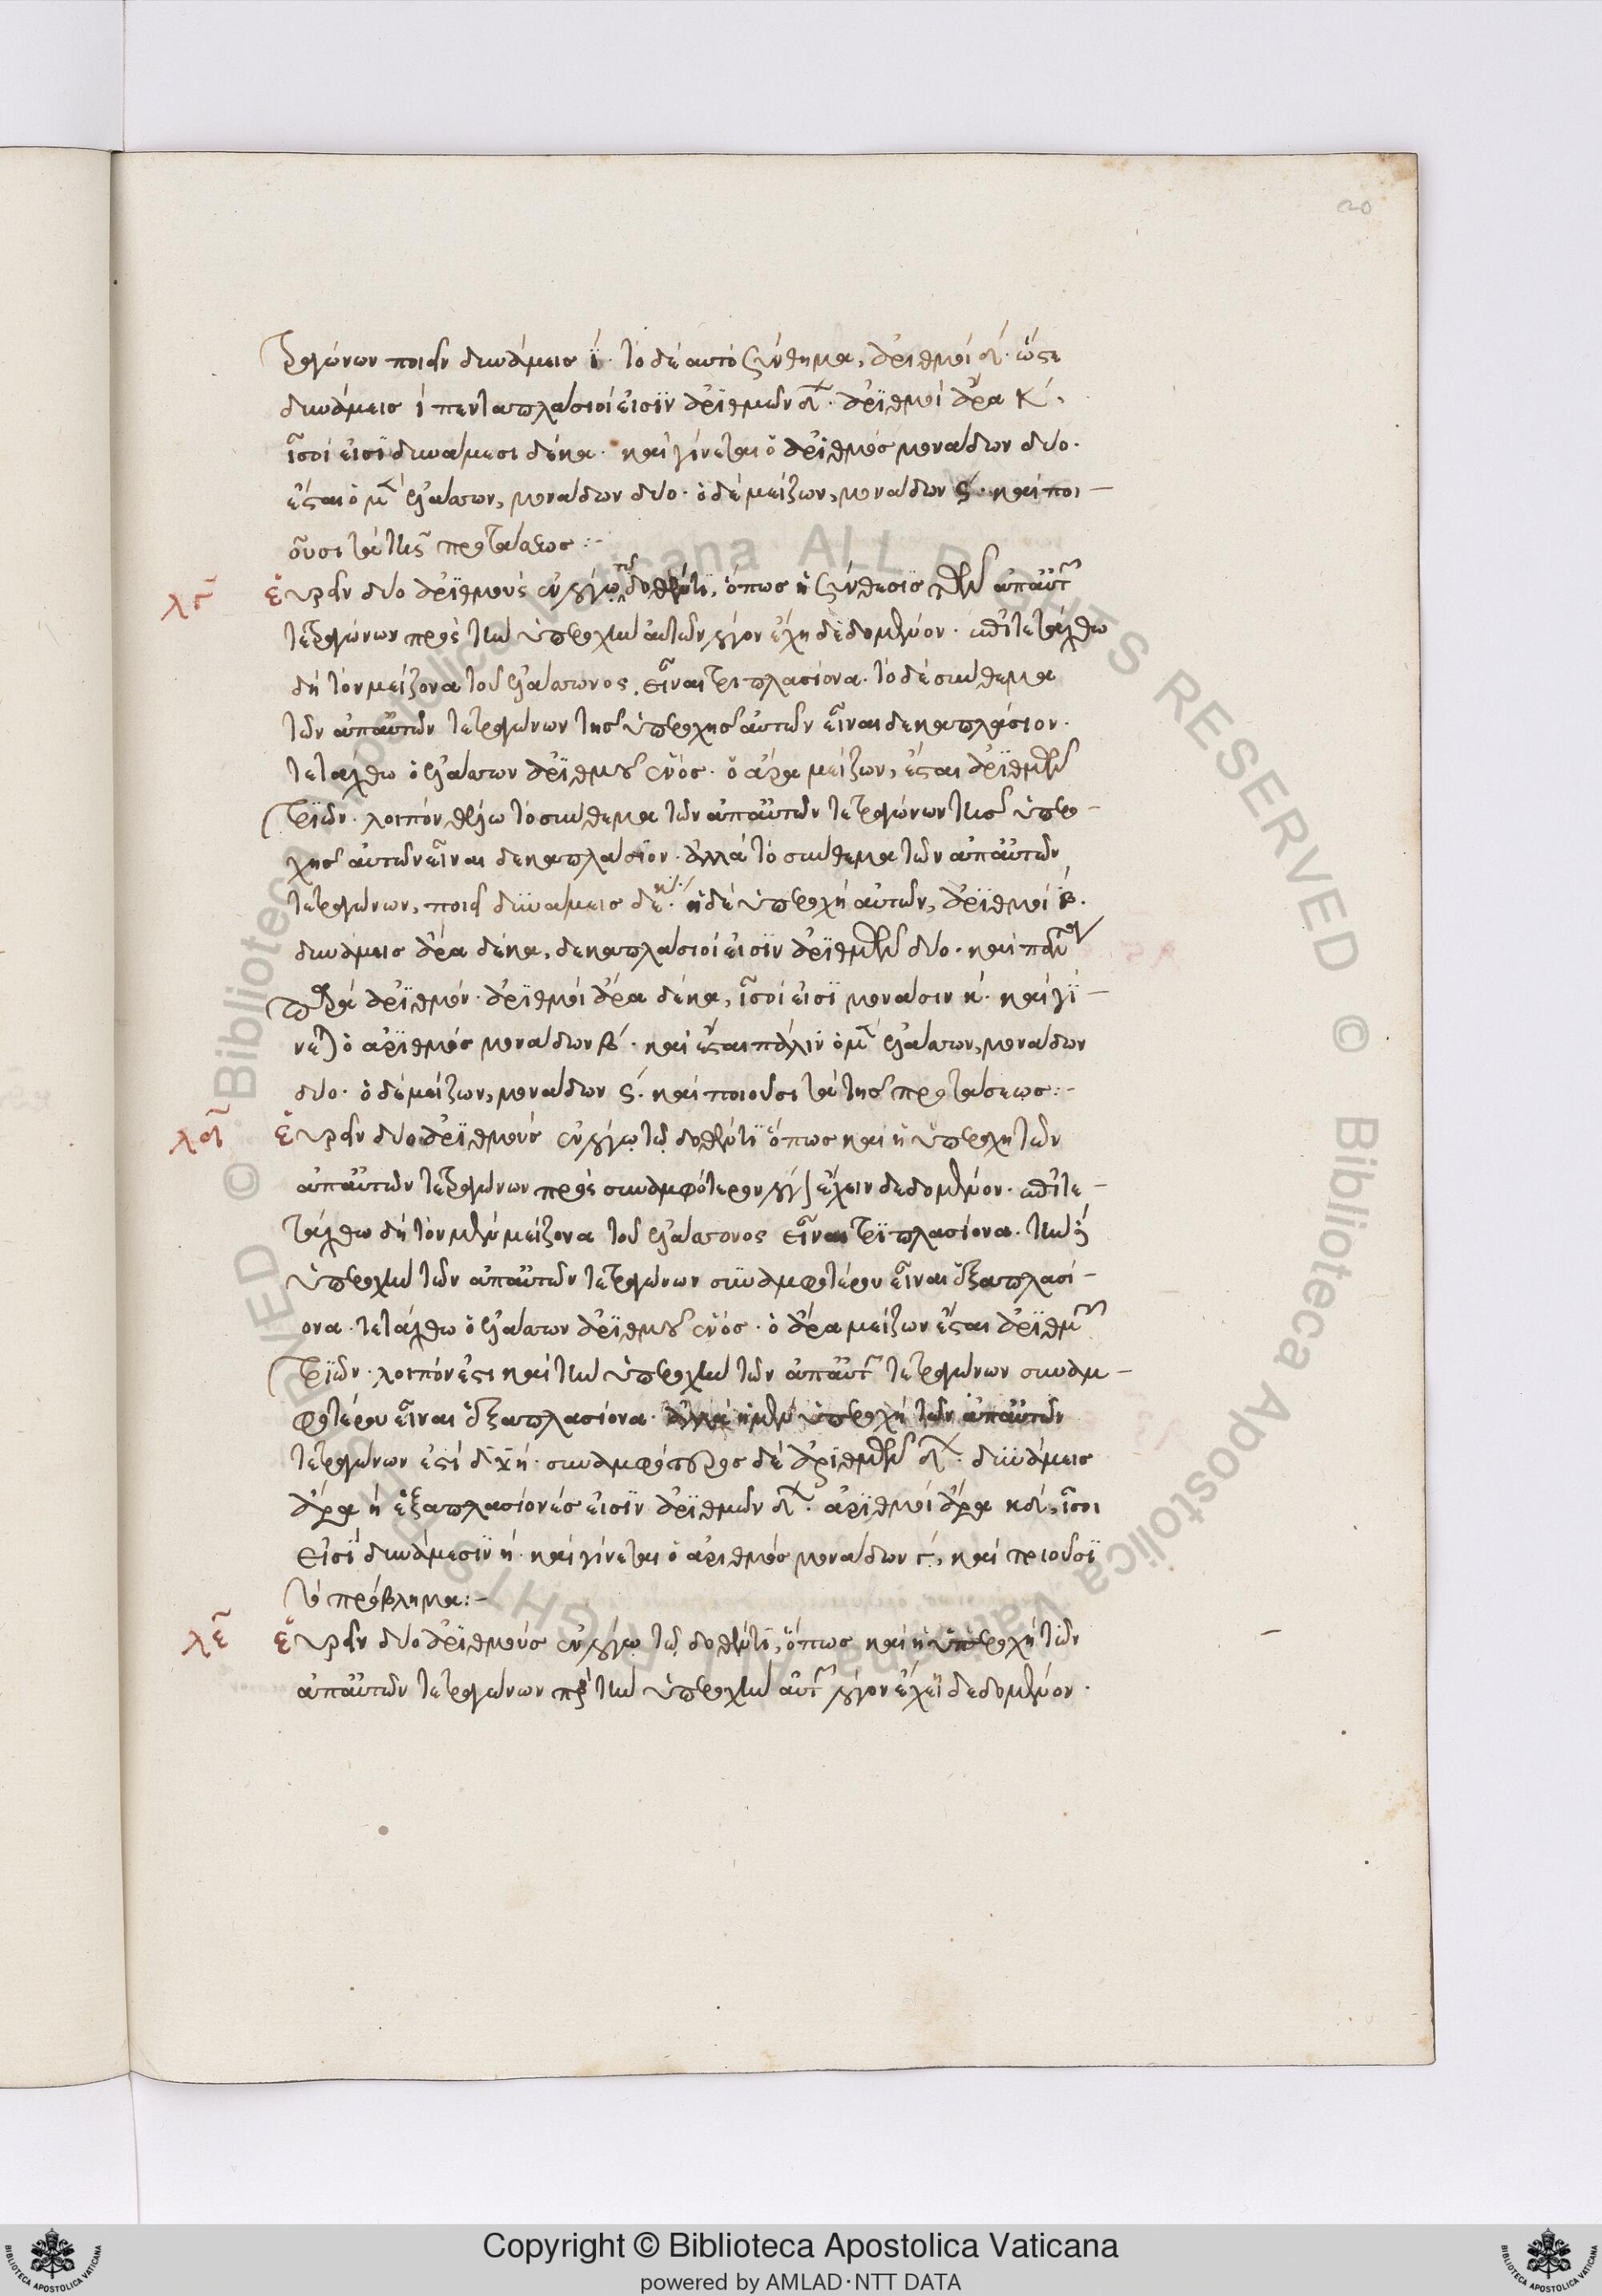 20
τραγώνων ποιεῖν δυνάμεις ι΄. τὸ δὲ αὐτὸ σύνθημα, ἀριθμοὶ δ΄. ὥστε
δυνάμεις ι΄ πενταπλάσιοί εἰσὶν ἀριθμῶν δ΄. ἀριθμοὶ ἄρα κ΄,
ἴσοι εἰσὶ δυνάμεσι δέκα. καὶ γίνεται ὁ ἀριθμὸς μονάδων δύο.
ἔσται ὁ μ̅ ἐλάττων, μονάδων δύο. ὁ δὲ μείζων, μονάδων ς΄. καὶ ποι-
οῦσι τὰ τῆς προτάσεως:-
λγ Εὑρεῖν δύο ἀριθμοὺς ἐν λόγῳ τῷ δοθέντι, ὅπως ἡ σύνθεσις τῶν ἀπ' αὐτ
τετραγώνων πρὸς τὴν ὑπεροχὴν αὐτῶν λόγον ἔχῃ δεδομένον. ἐπιτετάχθω
δὴ τὸν μείζονα τοῦ ἐλάττονος εἶναι τριπλασίονα. τὸ δὲ σύνθεμα
τῶν ἀπ' αὐτῶν τετραγώνων τῆς ὑπεροχῆς αὐτῶν εἶναι δεκαπλάσιον.
τετάχθω ὁ ἐλάττων ἀριθμοῦ ἑνός. ὁ ἄρα μείζων, ἔσται ἀριθμῶν
τριῶν. λοιπὸν θέλω τὸ σύνθεμα τῶν ἀπ' αὐτῶν τετραγώνων τῆς ὑπερο-
χῆς αὐτῶν εἶναι δεκαπλάσιον. ἀλλὰ τὸ σύνθεμα τῶν ἀπ' αὐτῶν
τετραγώνων, ποιεῖ δυνάμεις δέκα. ἡ δὲ ὑπεροχὴ αὐτῶν, ἀριθμοὶ β.
δυνάμεις ἄρα δέκα, δεκαπλάσιοί εἰσὶν ἀριθμῶν δύο. καὶ πάντα
παρὰ ἀριθμόν. ἀριθμοὶ ἄρα δέκα, ἴσοι εἰσὶ μονάσιν κ΄. καὶ γί-
νεται ὁ ἀριθμὸς μονάδων β΄. καὶ ἔσται πάλιν ὁ μ̅ ἐλάττων, μονάδων
δύο. ὁ δὲ μείζων, μονάδων ς΄. καὶ ποιοῦσι τὰ τῆς προτάσεως:-
λδ Εὑρεῖν δύο ἀριθμοὺς ἐν λόγῳ τῷ δοθέντι ὅπως καὶ ἡ ὑπεροχὴ τῶν
ἀπ' αὐτῶν τετραγώνων πρὸς συναμφότερον λόγον ἔχειν δεδομένον. ἐπιτε-
τάχθω δὴ τὸν μὲν μείζονα τοῦ ἐλάττονος εἶναι τριπλασίονα. τὴν δὲ
ὑπεροχὴν τῶν ἀπ' αὐτῶν τετραγώνων συναμφοτέρου εἶναι ἑξαπλασί-
ονα. τετάχθω ὁ ἐλάττων ἀριθμοῦ ἑνός. ὁ ἄρα μείζων ἔσται ἀριθμῶν
τριῶν. λοιπόν ἐστι καὶ τὴν ὑπεροχὴν τῶν ἀπ' αὐτ τετραγώνων συναμ-
φοτέρου εἶναι ἑξαπλασίονα. ἀλλὰ ἡ μὲν ὑπεροχὴ τῶν ἀπ' αὐτῶν
τετραγώνων ἐστὶ δ̅υ̅ η΄. συναμφότερος δὲ ἀριθμῶν δ΄. δυνάμεις
ἄρα η΄ ἑξαπλασίονές εἰσὶν ἀριθμῶν δ΄. ἀριθμοὶ ἄρα κδ΄, ἴσοι
εἰσὶ δυνάμεσιν η΄. καὶ γίνεται ὁ ἀριθμὸς μονάδων γ΄, καὶ ποιοῦσι
τὸ πρόβλημα:-
λε Εὑρεῖν δύο ἀριθμοὺς ἐν λόγῳ τῷ δοθέντι, ὅπως καὶ ἡ ὑπεροχὴ τῶν
ἀπ' αὐτῶν τετραγώνων πρὸς τὴν ὑπεροχὴν αὐτ λόγον ἔχει δεδομένον.
© Biblioteca Apostolica Vaticana ALL RIGHTS RESERVED
Copyright © Biblioteca Apostolica Vaticana
powered by AMLAD·NTT DATA